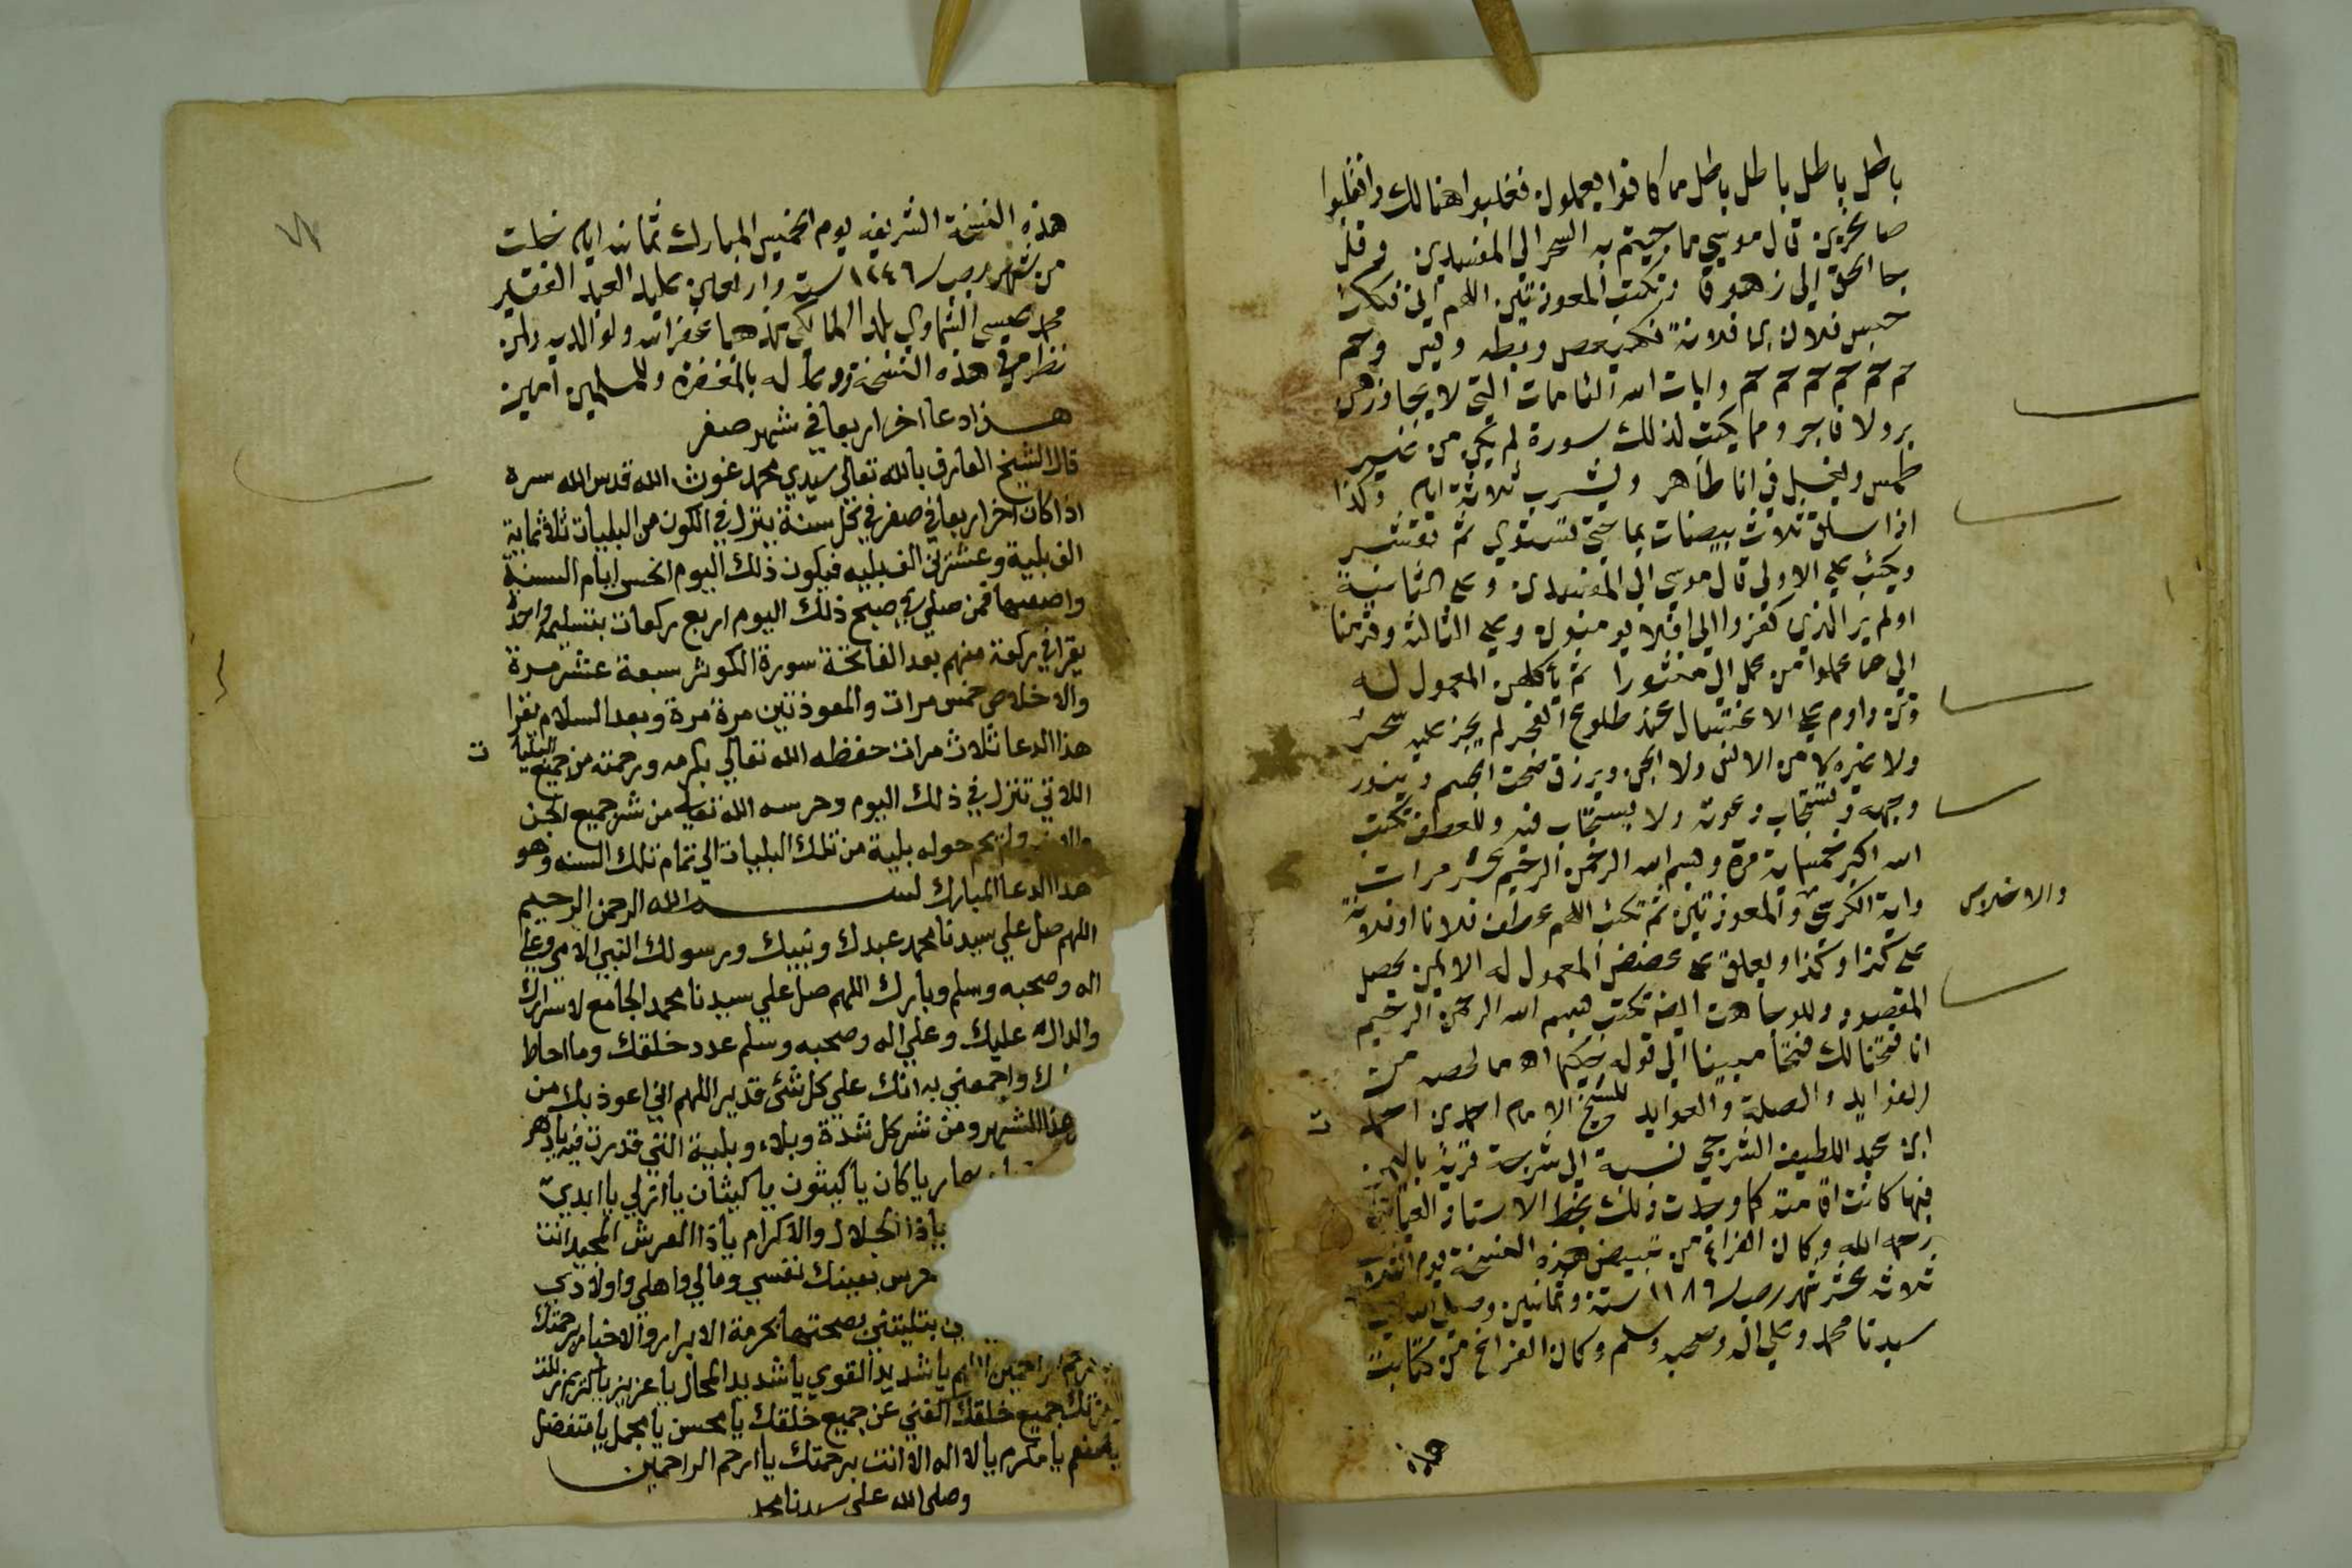 باطل باطل باطل باطل ما كانوا يعملون فغلبوا هنالك وانقلبوا
صاغرين قال موسي ما جيتم به السحر الي المفسدين وقل
جا الحق الي زهوقا وتكتب المعوذتين اللهم اني فككت
حبس فلان بن فلانة بكهيعص وبطه ويس وحم
حم حم حم حم حم حم وايات الله التامات التي لا يجاوزهن
بر ولا فاجر ومما يكتب لذلك سورة لم يكن من غير
طمس ويغسل في انا طاهر ويشرب ثلاثة ايام وكذا
اذا سلق ثلاث بيضات بما حتي تستوي ثم تقشر
ويكتب علي الاولي قال موسي الي المفسدين وعلي الثانية
اولم ير الذين كفروا الي افلا يومنون وعلي الثالثة وقدمنا
الي ما عملوا من عمل الي منثورا ثم يأكلهن المعمول له
ومن داوم علي الاغتسال عند طلوع الفجر لم يجز عليه سحر
ولا غيره لا من الانس ولا الجن ويرزق صحت الجسم وينور
وجهه وتستجاب دعوته ولا يستجاب فيه وللعطف تكتب
الله اكبر خمسماية مرة وبسم الله الرحمن الرحيم عشر مرات
واية الكرسي والمعوذتين ثم تكتب اللهم عطف فلانا او فلانة
والاخلاص
علي كذا وكذا ويعلق علي عضد المعمول له الايمن يحصل
المقصود وللوجاهت ايضا تكتب بسم الله الرحمن الرحيم
انا فتحنا لك فتحا مبينا الي قوله حكيما اه ما لخصه من
الفوايد والصلة والعوايد للشيخ الامام احمد بن احمد
ابن عبد اللطيف الشرجي نسبة الي شرجة قرية باليمن
فيها كانت اقامته كما وجدت ذلك بخط الاستاذ
رحمه الله وكان الفراغ من تبييض هذه النسخة يوم
ثلاثة عشر شهر رجب ١١٨٦ ستة وثمانين وصلي الله علي
سيدنا محمد وعلي اله وصحبه وسلم وكان الفراغ من كتابت
هذه
هذه النسخة الشريفه يوم الخميس المبارك ثمانية ايام خلت
من شهر رجب ١٢٤٦ ستة واربعين علي يد العبد الفقير
محمد عيسي الشماوي بلدا المالكي مذهبا غفر الله له ولوالديه ولمن
نظر في هذه النسخة ودعا له بالمغفرة وللمسلمين امين
هذا دعا اخر اربعا في شهر صفر
قال الشيخ العارف بالله تعالي سيدي محمد غوث الله قدس الله سره
اذا كان اخر اربعا في صفر في كل سنة ينزل في الكون من البليات ثلاثماية
الف بلية وعشرين الف بليه فيكون ذلك اليوم انحس ايام السنة
واصعبها فمن صلي في صبح ذلك اليوم اربع ركعات بتسليمه واحدة
يقرا في ركعة منهم بعد الفاتحة سورة الكوثر سبعة عشر مرة
والاخلاص خمس مرات والمعوذتين مرة مرة وبعد السلام يقرا
هذا الدعا ثلاث مرات حفظه الله تعالي بكرمه ورحمته من جميع البليات
اللاتي تنزل في ذلك اليوم وحرسه الله تعالي من شر جميع الجن
والانس ولم يحم حوله بلية من تلك البليات الي تمام تلك السنه وهو
هذا الدعا المبارك بسم الله الرحمن الرحيم
اللهم صل علي سيدنا محمد عبدك ونبيك ورسولك النبي الامي وعلي
اله وصحبه وسلم وبارك اللهم صل علي سيدنا محمد الجامع لاسرارك
والدال عليك وعلي اله وصحبه وسلم عدد خلقك وما احاط
واجمعني به انك علي كل شئ قدير اللهم اني اعوذ بك من
هذا الشهر ومن شر كل شدة وبلاء وبلية التي قدرت فيه يا دهر
يا كان يا كينون يا كينان يا ازلي يا ابدي
يا ذا الجلال والاكرام يا ذا العرش المجيد انت
بعينك نفسي ومالي واهلي واولادي
بتليتني بصحبتها بحرمة الابرار والاخيار برحمتك
ارحم الراحمين اللهم يا شديد القوي يا شديد المحال يا عزيز يا كريم
لعزتك جميع خلقك اكفني عن جميع خلقك يا محسن يا مجمل يا متفضل
يا منعم يا مكرم يا لا اله الا انت برحمتك يا ارحم الراحمين
وصلي الله علي سيدنا محمد